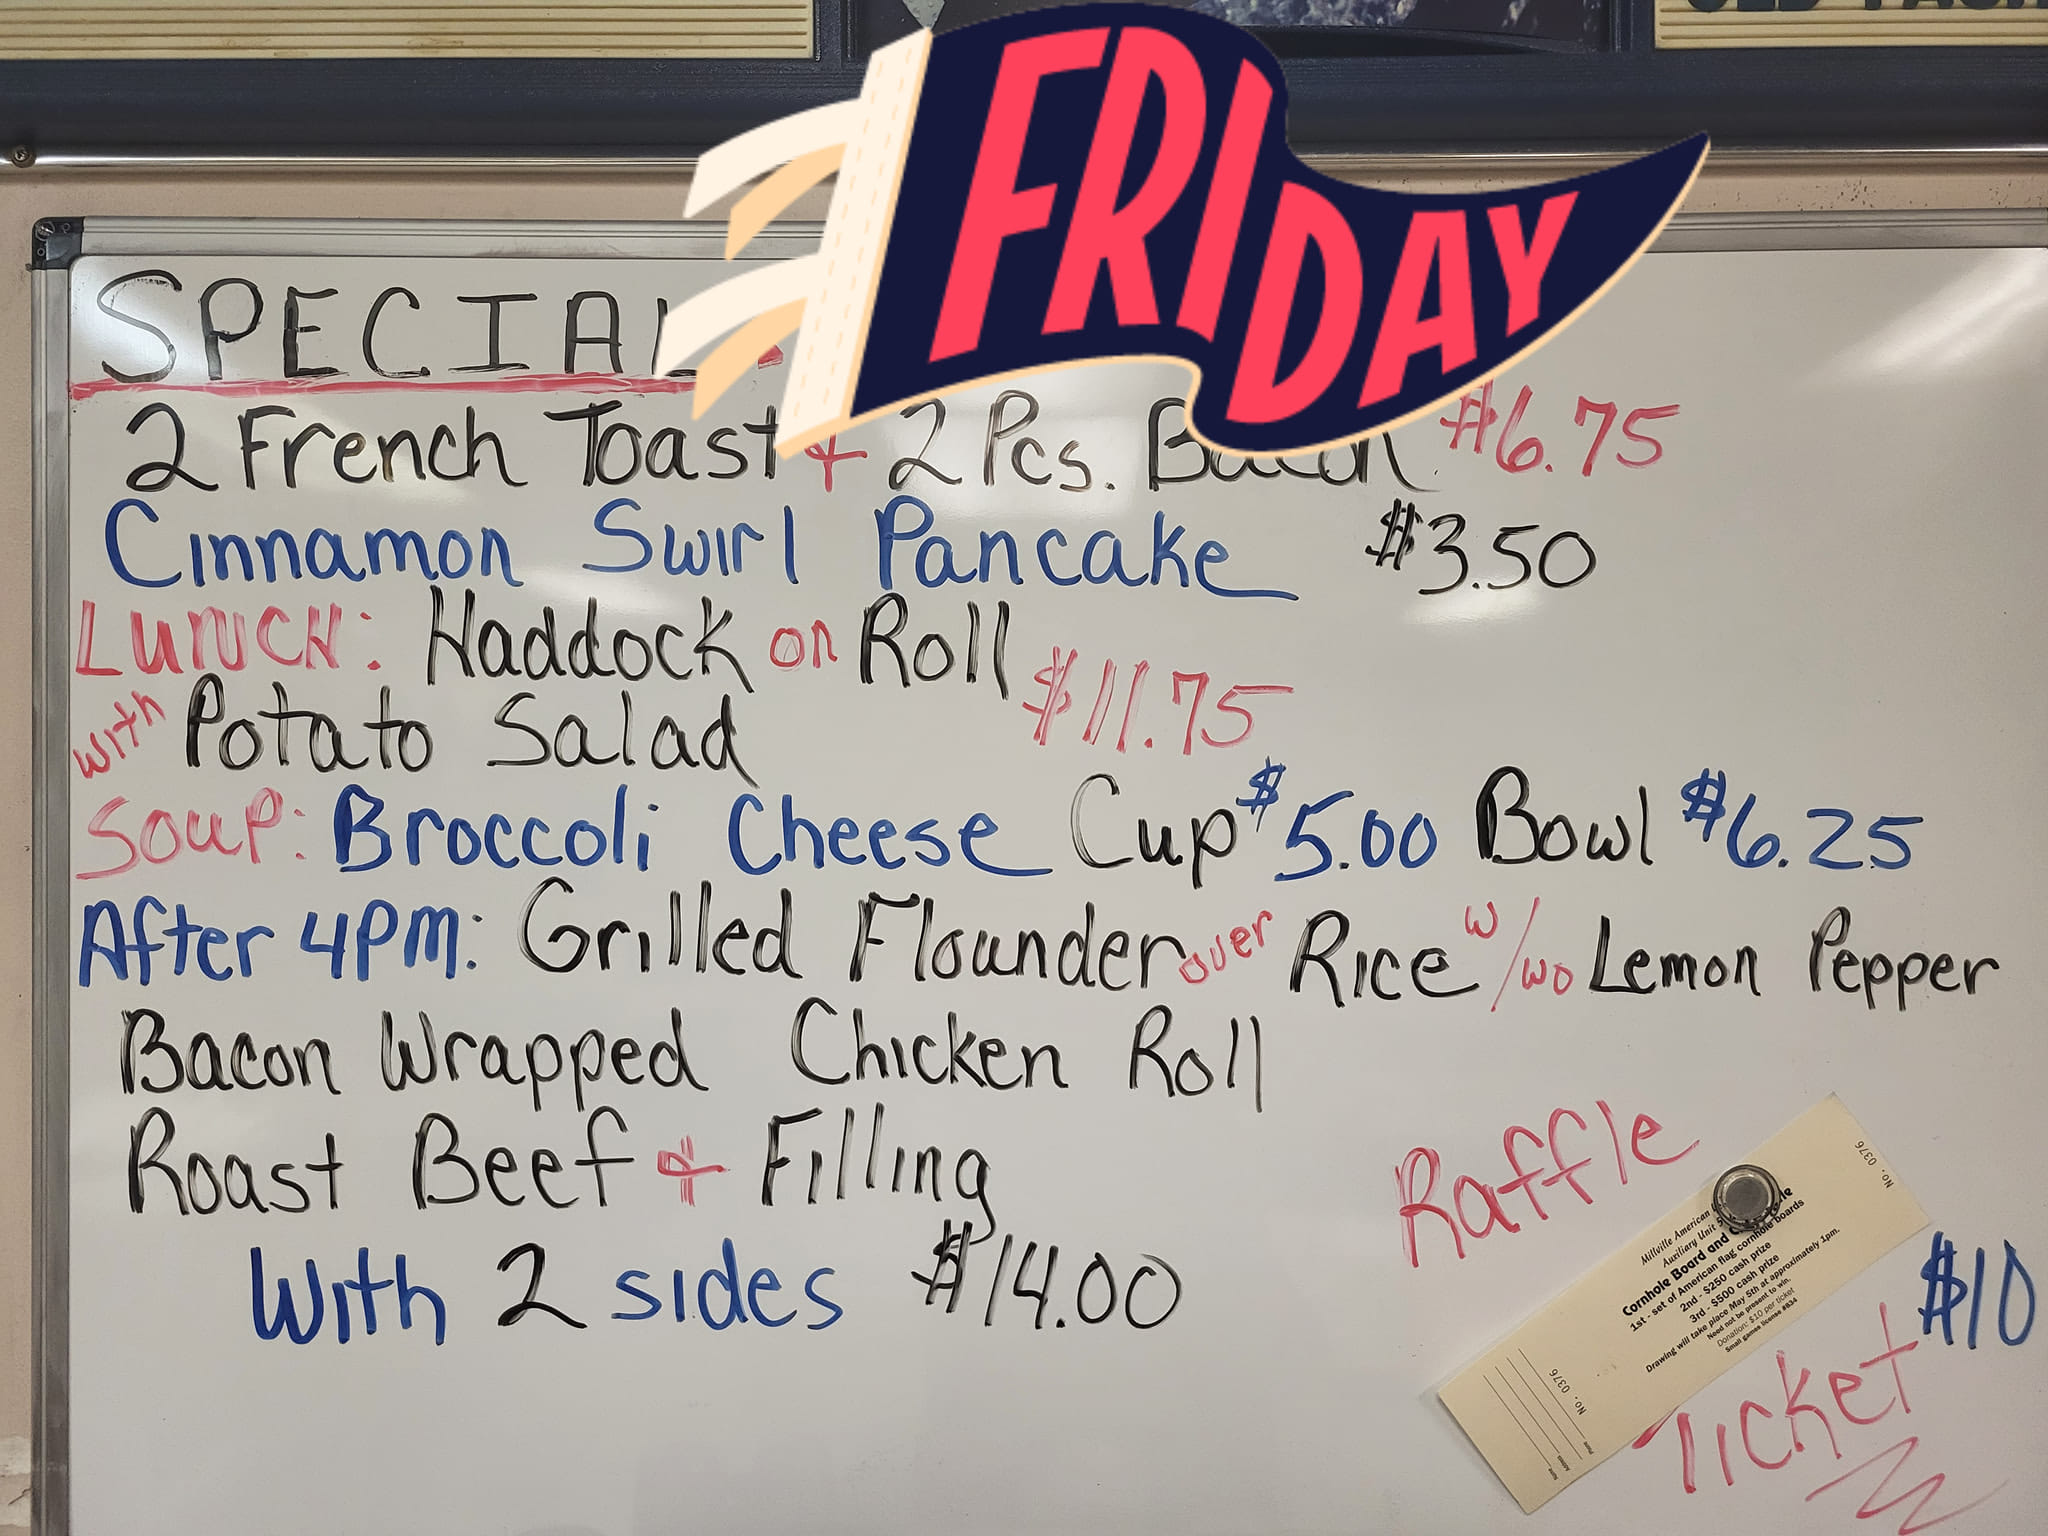 FRIDAY
SPECIAL
2 French Toast & 2 Pcs. Bacon $6.75
Cinnamon Swirl Pancake $3.50
LUNCH: Haddock on Roll
with Potato Salad $11.75
Soup: Broccoli Cheese Cup $5.00 Bowl $6.25
After 4PM: Grilled Flounder over Rice w/wo Lemon Pepper
Bacon Wrapped Chicken Roll
Roast Beef & Filling
With 2 sides $14.00
Raffle
No. 0376
Millville American
Auxiliary Unit
Cornhole Board and
1st - set of American flag cornhole boards
2nd - $250 cash prize
3rd - $500 cash prize
Drawing will take place May 5th at approximately 1pm.
Need not be present to win.
Donation: $10 per ticket
Small games license #834
No. 0376
Name
Address
Phone
Ticket $10